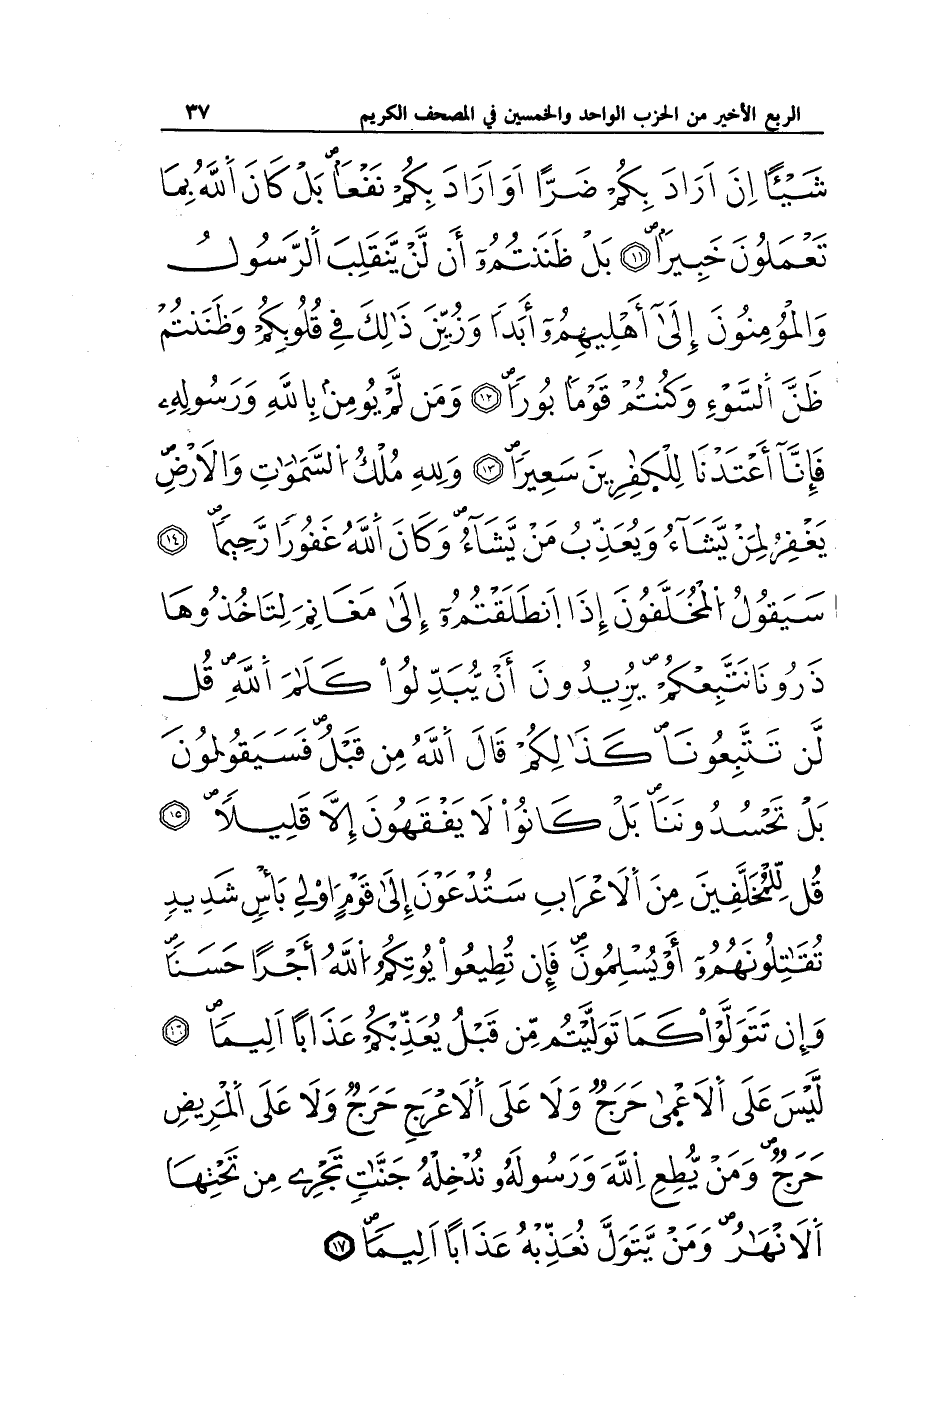 الربع الأخير من الحزب الواحد والخمسين في المصحف الكريم ٣٧
شَيْـًٔا اِنَ اَرَادَ بِكُمْ ضَرًّا اَوَ اَرَادَ بِكُمْ نَفْعاَۢ بَلْ كَانَ اَ۬للَّهُ بِمَا
تَعْمَلُونَ خَبِيراًۖ ١١ بَلْ ظَنَنتُمُۥٓ أَن لَّنْ يَّنقَلِبَ اَ۬لرَّسُولُ
وَالْمُؤْمِنُونَ إِلَىٰٓ أَهْلِيهِمُۥٓ أَبَداَ وَزُيِّنَ ذَٰلِكَ فِے قُلُوبِكُمْ وَظَنَنتُمْ
ظَنَّ اَ۬لسَّوْءِ وَكُنتُمْ قَوْماَۢ بُوراًۖ ١٢ وَمَن لَّمْ يُومِنۢ بِاللَّهِ وَرَسُولِهِۦ
فَإِنَّآ أَعْتَدْنَا لِلْكَٰفِرِينَ سَعِيراًۖ ١٣ وَلِلهِ مُلْكُ اُ۬لسَّمَٰوَٰتِ وَالَارْضِۖ
يَغْفِرُ لِمَنْ يَّشَآءُ وَيُعَذِّبُ مَنْ يَّشَآءُۖ وَكَانَ اَ۬للَّهُ غَفُوراٗ رَّحِيماٗۖ ١٤
سَيَقُولُ اُ۬لْمُخَلَّفُونَ إِذَا اَ۪نطَلَقْتُمُۥٓ إِلَىٰ مَغَانِمَ لِتَاخُذُوهَا
ذَرُونَا نَتَّبِعْكُمْۖ يُرِيدُونَ أَنْ يُّبَدِّلُواْ كَلَٰمَ اَ۬للَّهِۖ قُل
لَّن تَتَّبِعُونَاۖ كَذَٰلِكُمْ قَالَ اَ۬للَّهُ مِن قَبْلُۖ فَسَيَقُولُونَ
بَلْ تَحْسُدُونَنَاۖ بَلْ كَانُواْ لَا يَفْقَهُونَ إِلَّا قَلِيلاٗۖ ١٥
قُل لِّلْمُخَلَّفِينَ مِنَ اَ۬لَاعْرَابِ سَتُدْعَوْنَ إِلَىٰ قَوْمٍ اُوْلِے بَأْسٖ شَدِيدٖ
تُقَٰتِلُونَهُمُۥٓ أَوْ يُسْلِمُونَۖ فَإِن تُطِيعُواْ يُوتِكُمُ اُ۬للَّهُ أَجْراً حَسَناٗۖ
وَإِن تَتَوَلَّوْاْ كَمَا تَوَلَّيْتُم مِّن قَبْلُ يُعَذِّبْكُمْ عَذَاباً اَلِيماٗۖ ١٦
لَّيْسَ عَلَى اَ۬لَاعْمَىٰ حَرَجٞ وَلَا عَلَى اَ۬لَاعْرَجِ حَرَجٞ وَلَا عَلَى اَ۬لْمَرِيضِ
حَرَجٞۖ وَمَنْ يُّطِعِ اِ۬للَّهَ وَرَسُولَهُۥ نُدْخِلْهُ جَنَّٰتٖ تَجْرِے مِن تَحْتِهَا
اَ۬لَانْهَٰرُۖ وَمَنْ يَّتَوَلَّ نُعَذِّبْهُ عَذَاباً اَلِيماٗۖ ١٧